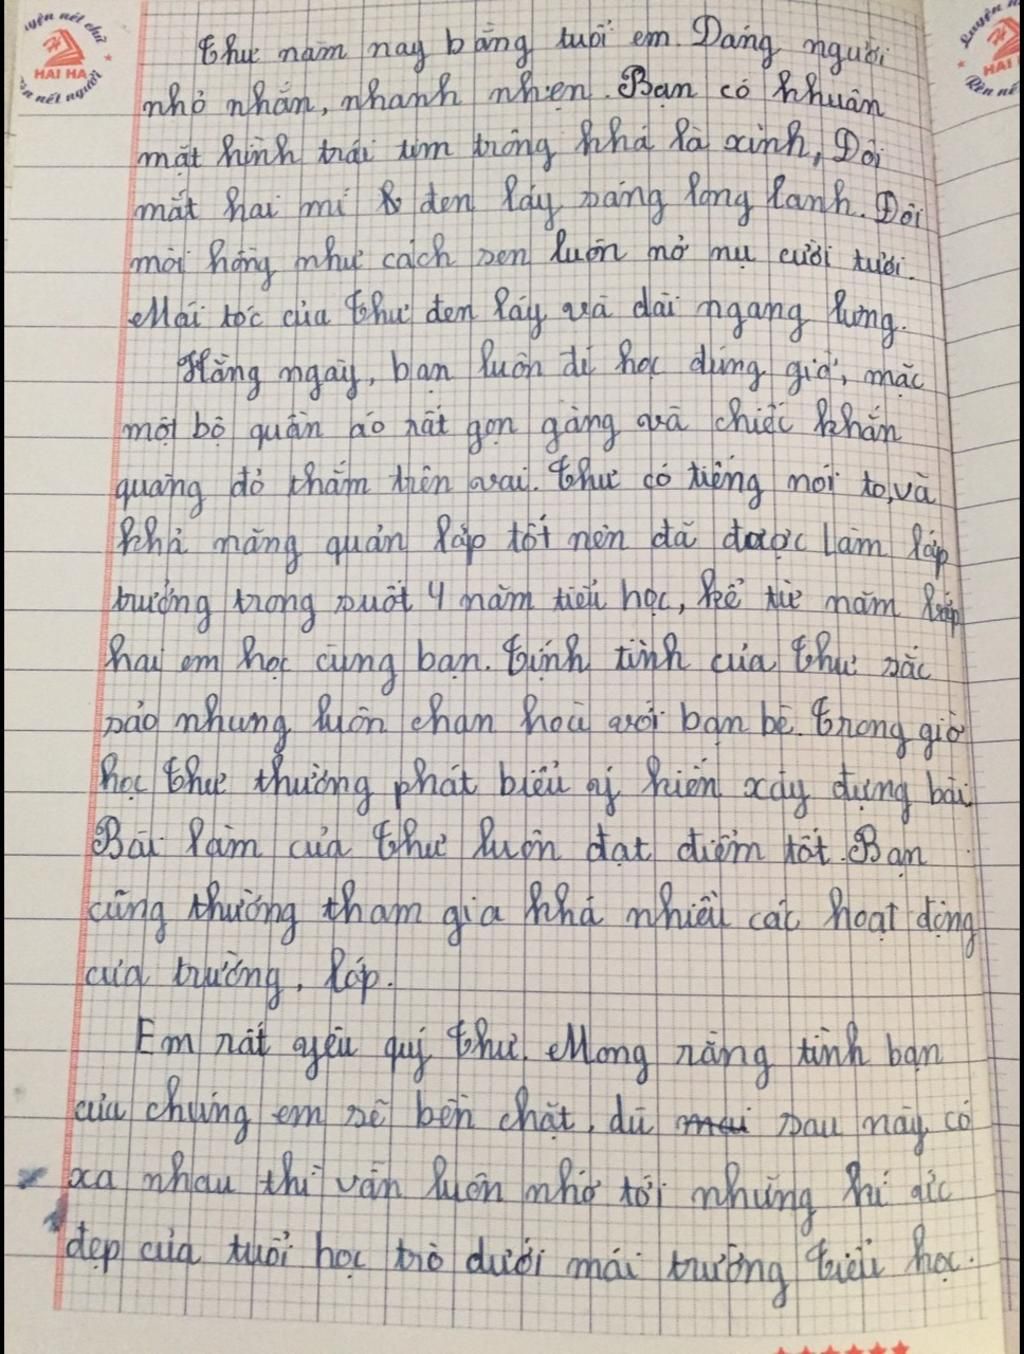 uyện nét chữ
HAI HA
èn nết người
Luyện n
HAI
Rèn nế
Thư năm nay bằng tuổi em. Dáng người
nhỏ nhắn, nhanh nhẹn. Bạn có khuôn
mặt hình trái tim trông khá là xinh, Đôi
mắt hai mí đen láy sáng long lanh. Đôi
môi hồng như cách sen luôn nở nụ cười tươi.
Mái tóc của Thư đen láy và dài ngang lưng.
Hằng ngày, bạn luôn đi học đúng giờ, mặc
một bộ quần áo rất gọn gàng và chiếc khăn
quàng đỏ thắm trên vai. Thư có tiếng nói to, và
khả năng quản lớp tốt nên đã được làm lớp
trưởng trong suốt 4 năm tiểu học, kể từ năm lớp
hai em học cùng bạn. Tính tình của Thư sắc
sảo nhưng luôn chan hoà với bạn bè. Trong giờ
học Thư thường phát biểu ý kiến xây dựng bài
Bài làm của Thư luôn đạt điểm tốt. Bạn
cũng thường tham gia khá nhiều các hoạt động
của trường, lớp.
Em rất yêu quý Thư. Mong rằng tình bạn
của chúng em sẽ bền chặt, dù mai sau này có
xa nhau thì vẫn luôn nhớ tới những kí ức
đẹp của tuổi học trò dưới mái trường Tiểu học.